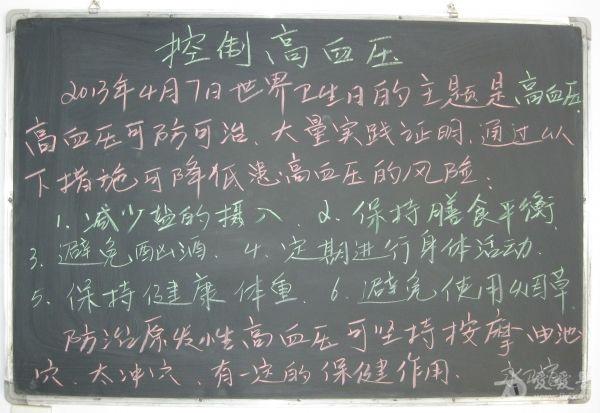 控制高血压
2013年4月7日世界卫生日的主题是高血压
高血压可防可治、大量实践证明、通过以
下措施可降低患高血压的风险:
1、减少盐的摄入、2、保持膳食平衡
3、避免酗酒、4、定期进行身体活动.
5、保持健康体重、6、避免使用烟草.
防治原发性高血压可坚持按摩曲池
穴、太冲穴、有一定的保健作用.